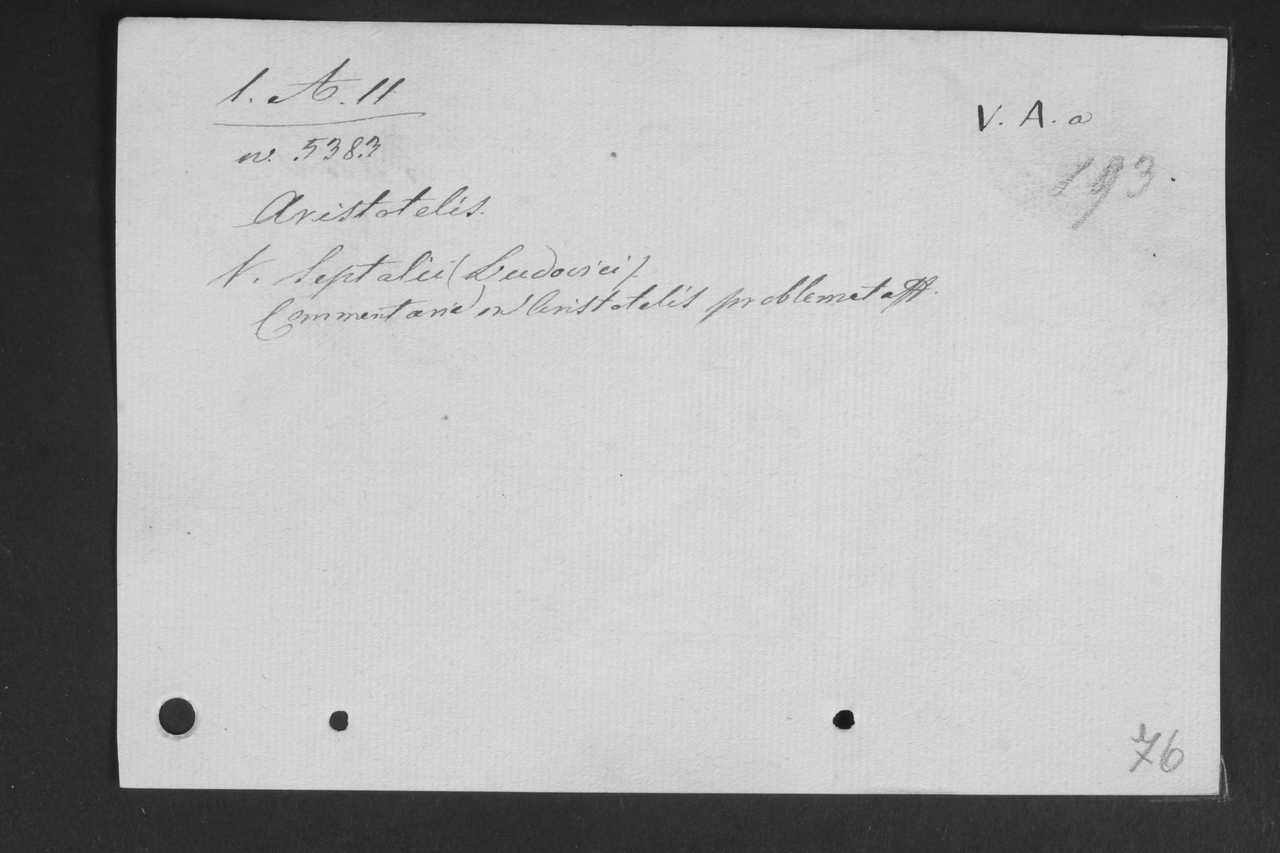 1. A. 11
V. A. a
n. 5383
193.
Aristotelis.
V. Septalii (Ludovici).
Commentaria in Aristotelis problemata
76